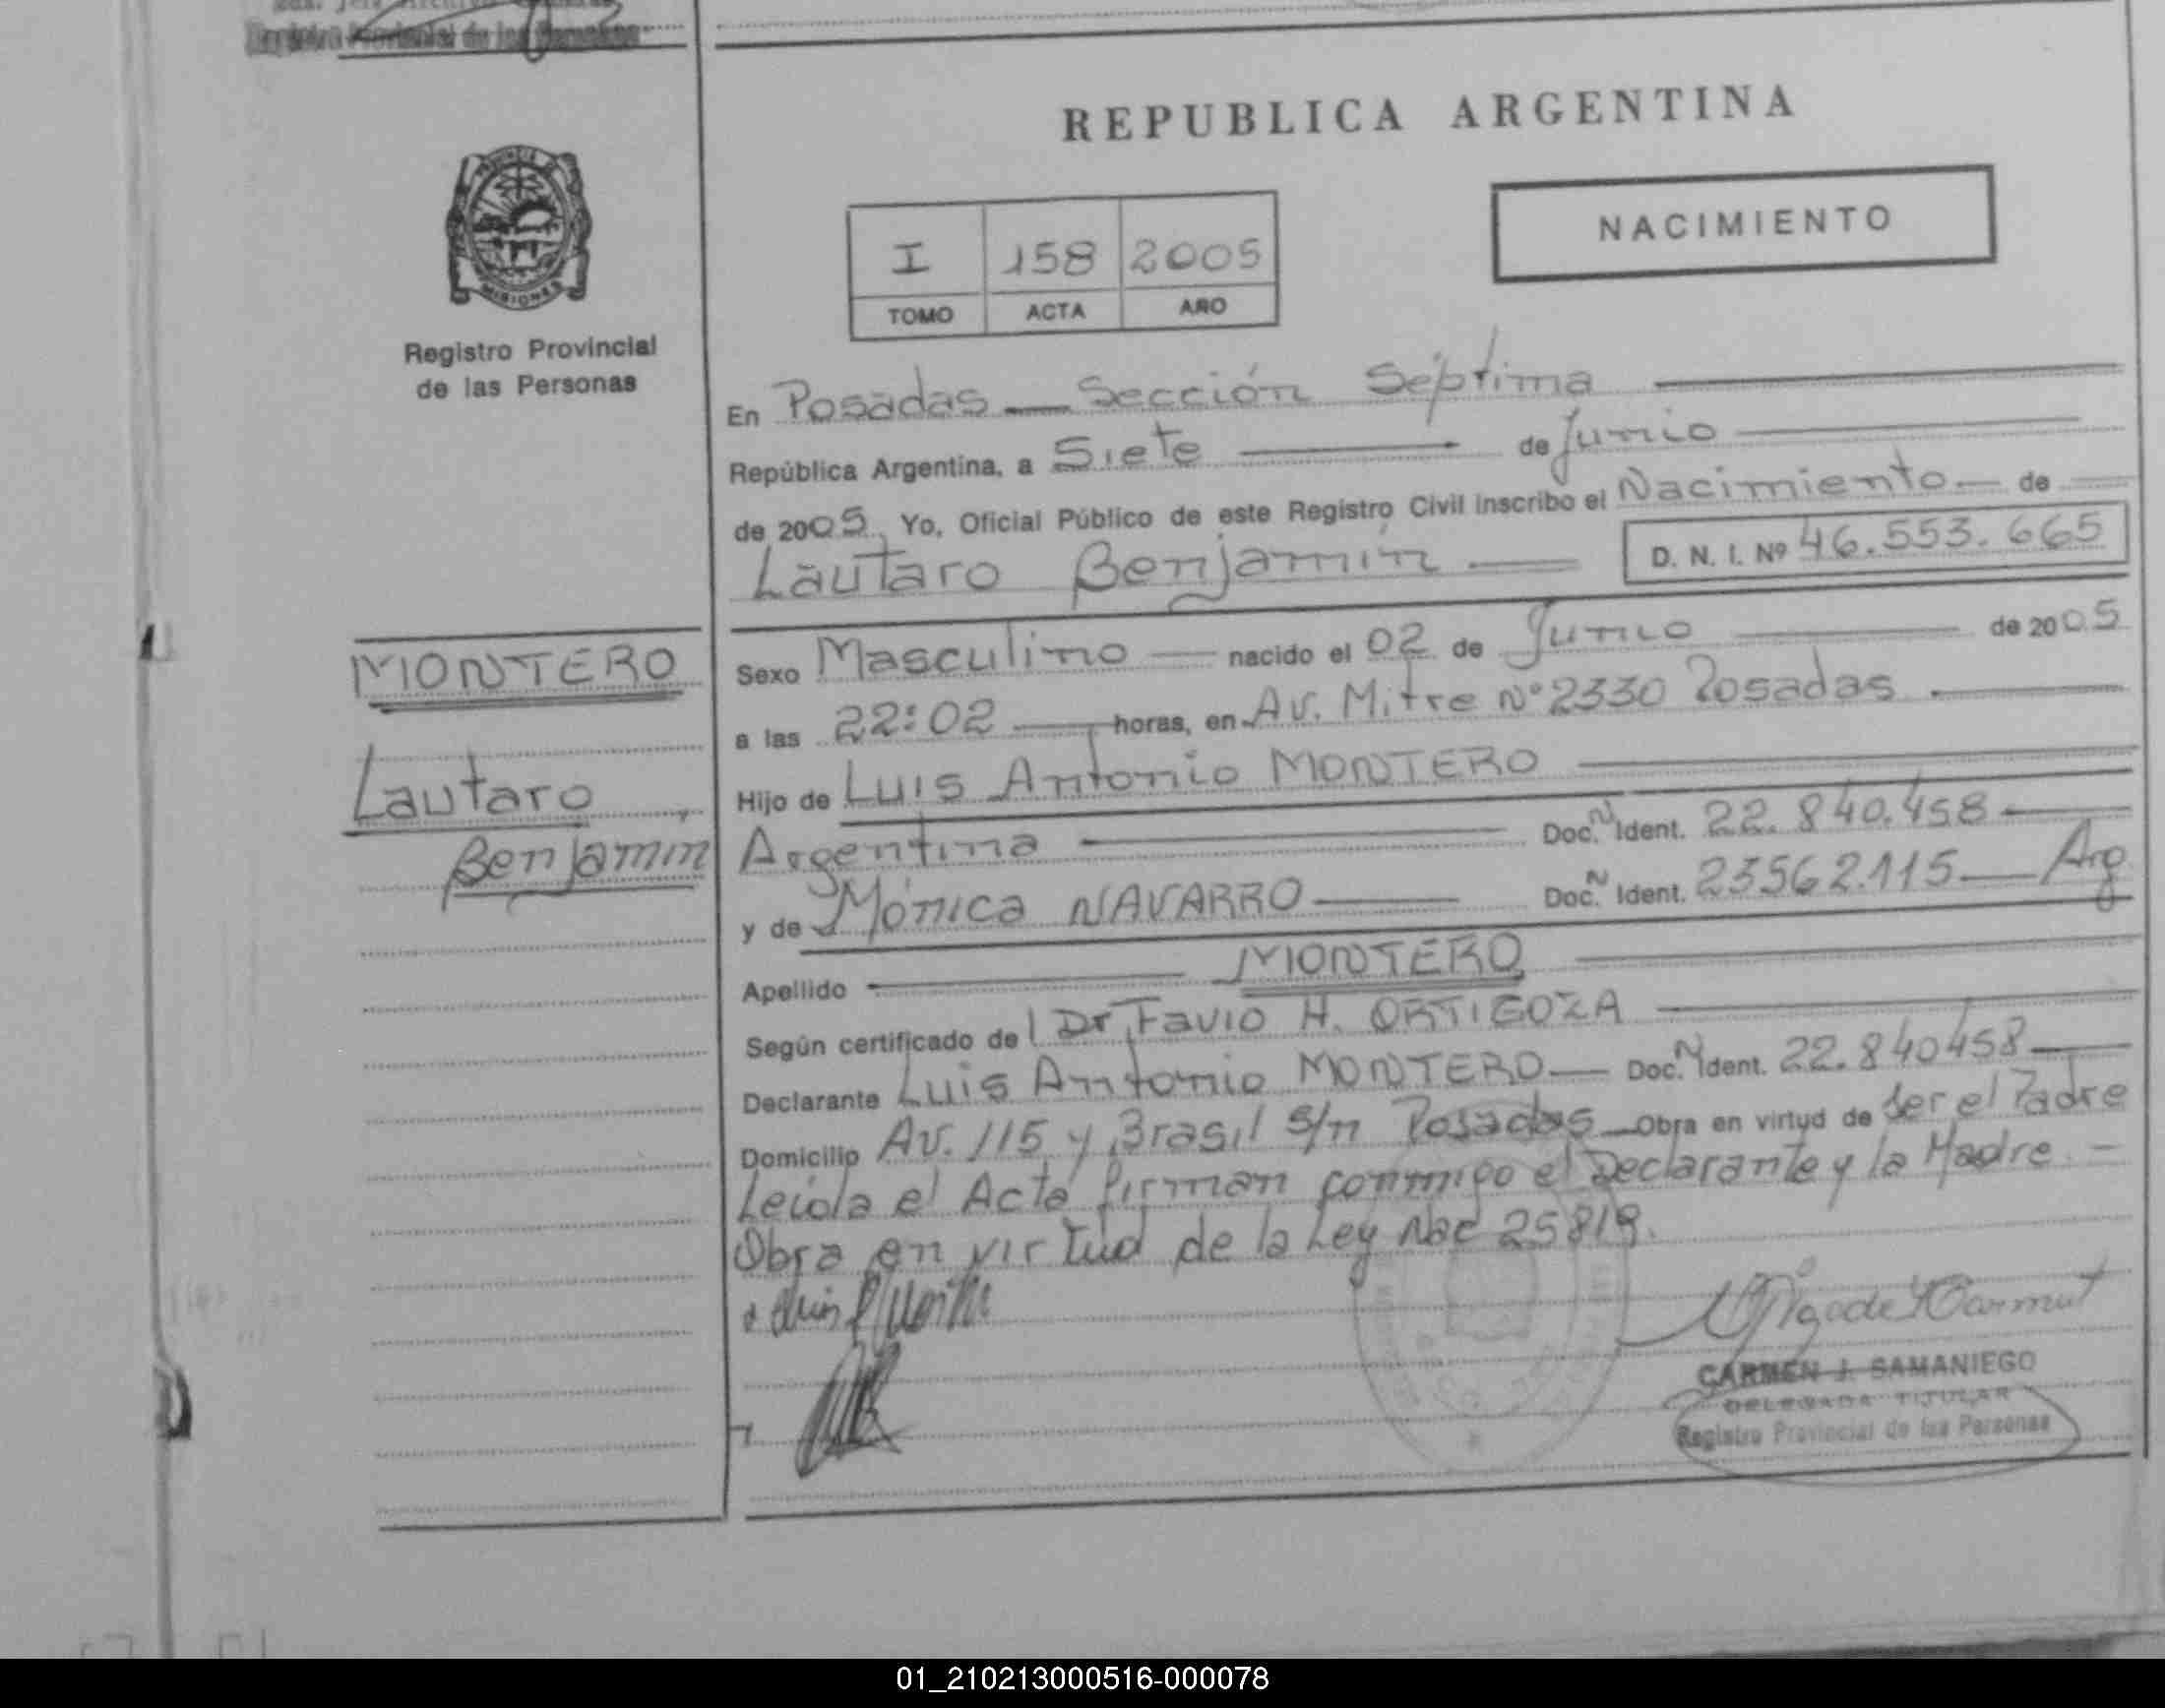 Registro Provincial de las Personas
REPUBLICA ARGENTINA
NACIMIENTO
I 158 2005
TOMO ACTA AÑO
MISIONES
Registro Provincial
de las Personas
MONTERO
Lautaro
Benjamín
En Posadas — Sección Séptima
República Argentina, a Siete de Junio
de 2005 Yo, Oficial Público de este Registro Civil inscribo el Nacimiento de
Lautaro Benjamín D. N. I. Nº 46.553.665
Sexo Masculino nacido el 02 de Junio de 2005
a las 22:02 horas, en Av. Mitre Nº 2330 Posadas
Hijo de Luis Antonio MONTERO
Argentina Doc. N Ident. 22.840.458
y de Mónica NAVARRO Doc. N Ident. 23562.115 — Arg
Apellido MONTERO
Según certificado de l Dr Favio H. ORTIGOZA
Declarante Luis Antonio MONTERO — Doc. N Ident. 22.840458
Domicilio Av. 115 y Brasil S/n Posadas Obra en virtud de Ser el Padre
Leída el Acta firman conmigo el Declarante y la Madre -
Obra en virtud de la Ley Nac 25819.
CARMEN J. SAMANIEGO
DELEGADA TITULAR
Registro Provincial de las Personas
01_210213000516-000078